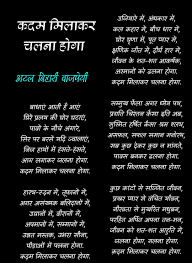 कदम मिलाकर
चलना होगा
अटल बिहारी वाजपेयी
बाधाएं आती हैं आएं
घिरें प्रलय की घोर घटाएं,
पावों के नीचे अंगारे,
सिर पर बरसें यदि ज्वालाएं,
निज हाथों में हंसते-हंसते,
आग लगाकर जलना होगा.
कदम मिलाकर चलना होगा.
हास्य-रूदन में, तूफानों में,
अगर असंख्यक बलिदानों में,
उद्यानों में, वीरानों में,
अपमानों में, सम्मानों में,
उन्नत मस्तक, उभरा सीना,
पीड़ाओं में पलना होगा.
कदम मिलाकर चलना होगा.
उजियारे में, अंधकार में,
कल कहार में, बीच धार में,
घोर घृणा में, पूत प्यार में,
क्षणिक जीत में, दीर्घ हार में,
जीवन के शत-शत आकर्षक,
अरमानों को ढलना होगा.
कदम मिलाकर चलना होगा.
सम्मुख फैला अगर ध्येय पथ,
प्रगति चिरंतन कैसा इति अब,
सुस्मित हर्षित कैसा श्रम श्लथ,
असफल, सफल समान मनोरथ,
सब कुछ देकर कुछ न मांगते,
पावस बनकर ढलना होगा.
कदम मिलाकर चलना होगा.
कुछ कांटों से सज्जित जीवन,
प्रखर प्यार से वंचित यौवन,
नीरवता से मुखरित मधुबन,
परहित अर्पित अपना तन-मन,
जीवन को शत-शत आहुति में,
जलना होगा, गलना होगा.
कदम मिलाकर चलना होगा.